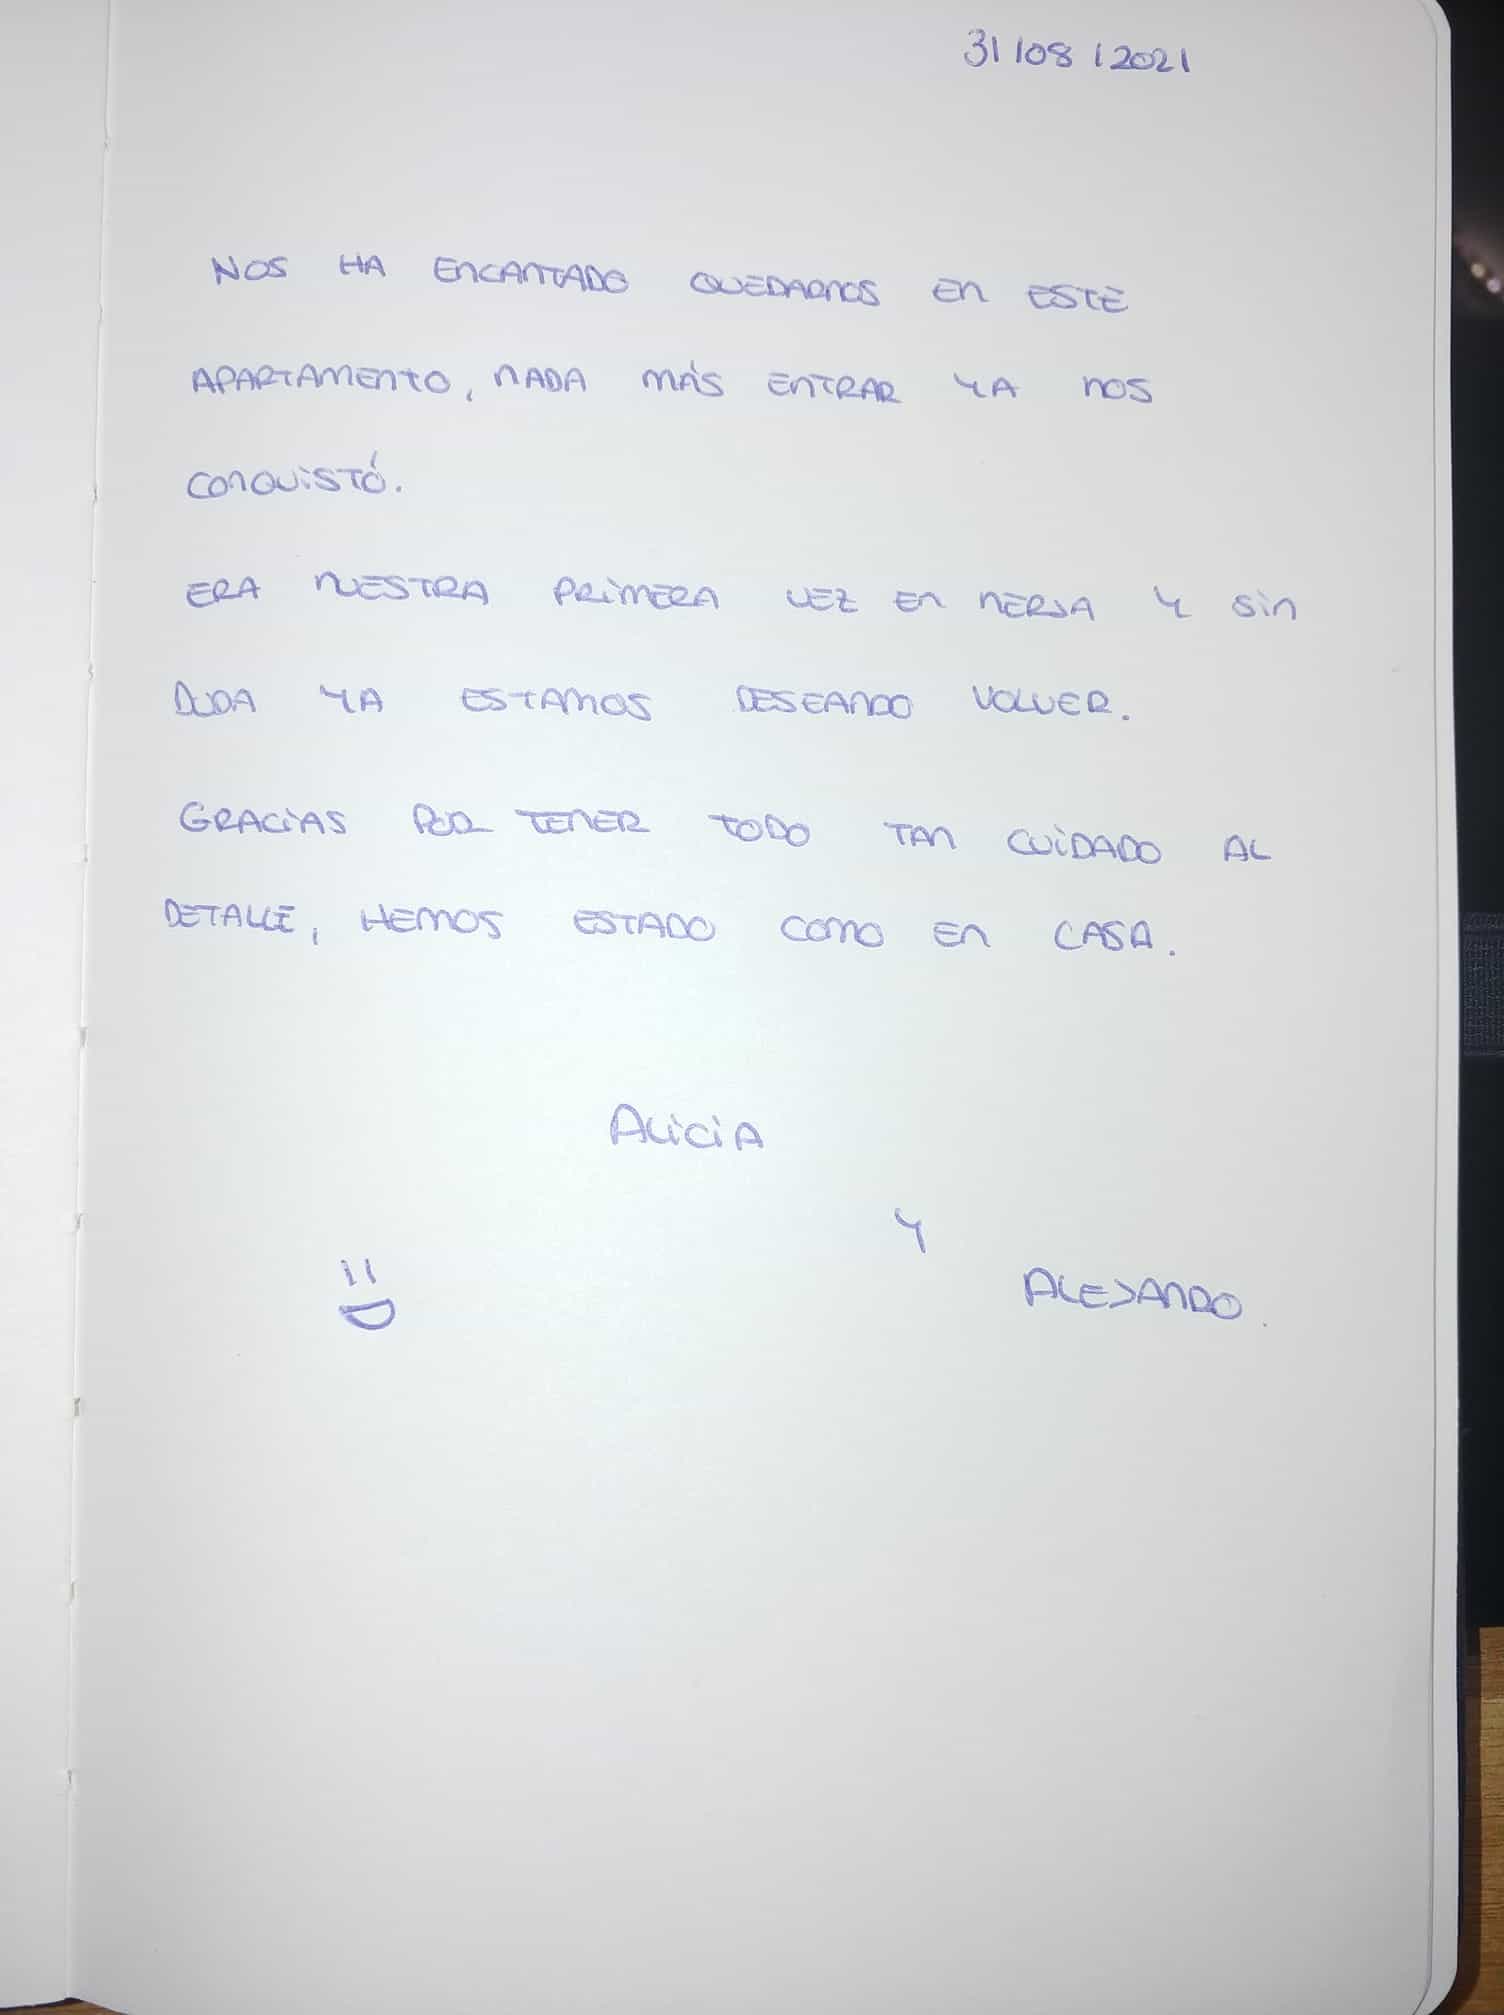 31/08/2021
NOS HA ENCANTADO QUEDARNOS EN ESTE
APARTAMENTO, NADA MÁS ENTRAR YA NOS
CONQUISTÓ.
ERA NUESTRA PRIMERA VEZ EN NERJA Y SIN
DUDA YA ESTAMOS DESEANDO VOLVER.
GRACIAS POR TENER TODO TAN CUIDADO AL
DETALLE, HEMOS ESTADO COMO EN CASA.
ALICIA
Y
ALEJANDO.